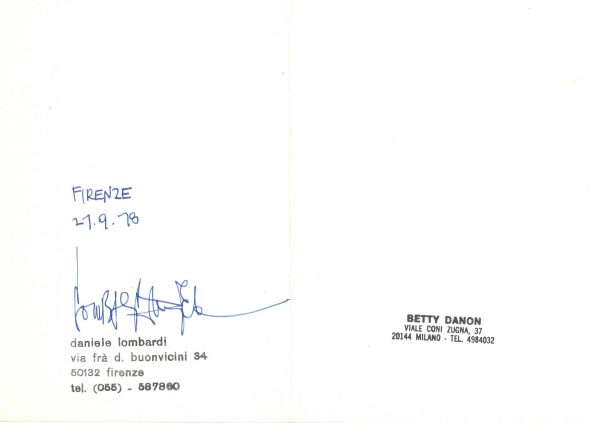 FIRENZE
27.9.78
daniele lombardi
via frà d. buonvicini 34
50132 firenze
tel. (055) - 587860
BETTY DANON
VIALE CONI ZUGNA, 37
20144 MILANO - TEL. 4984032